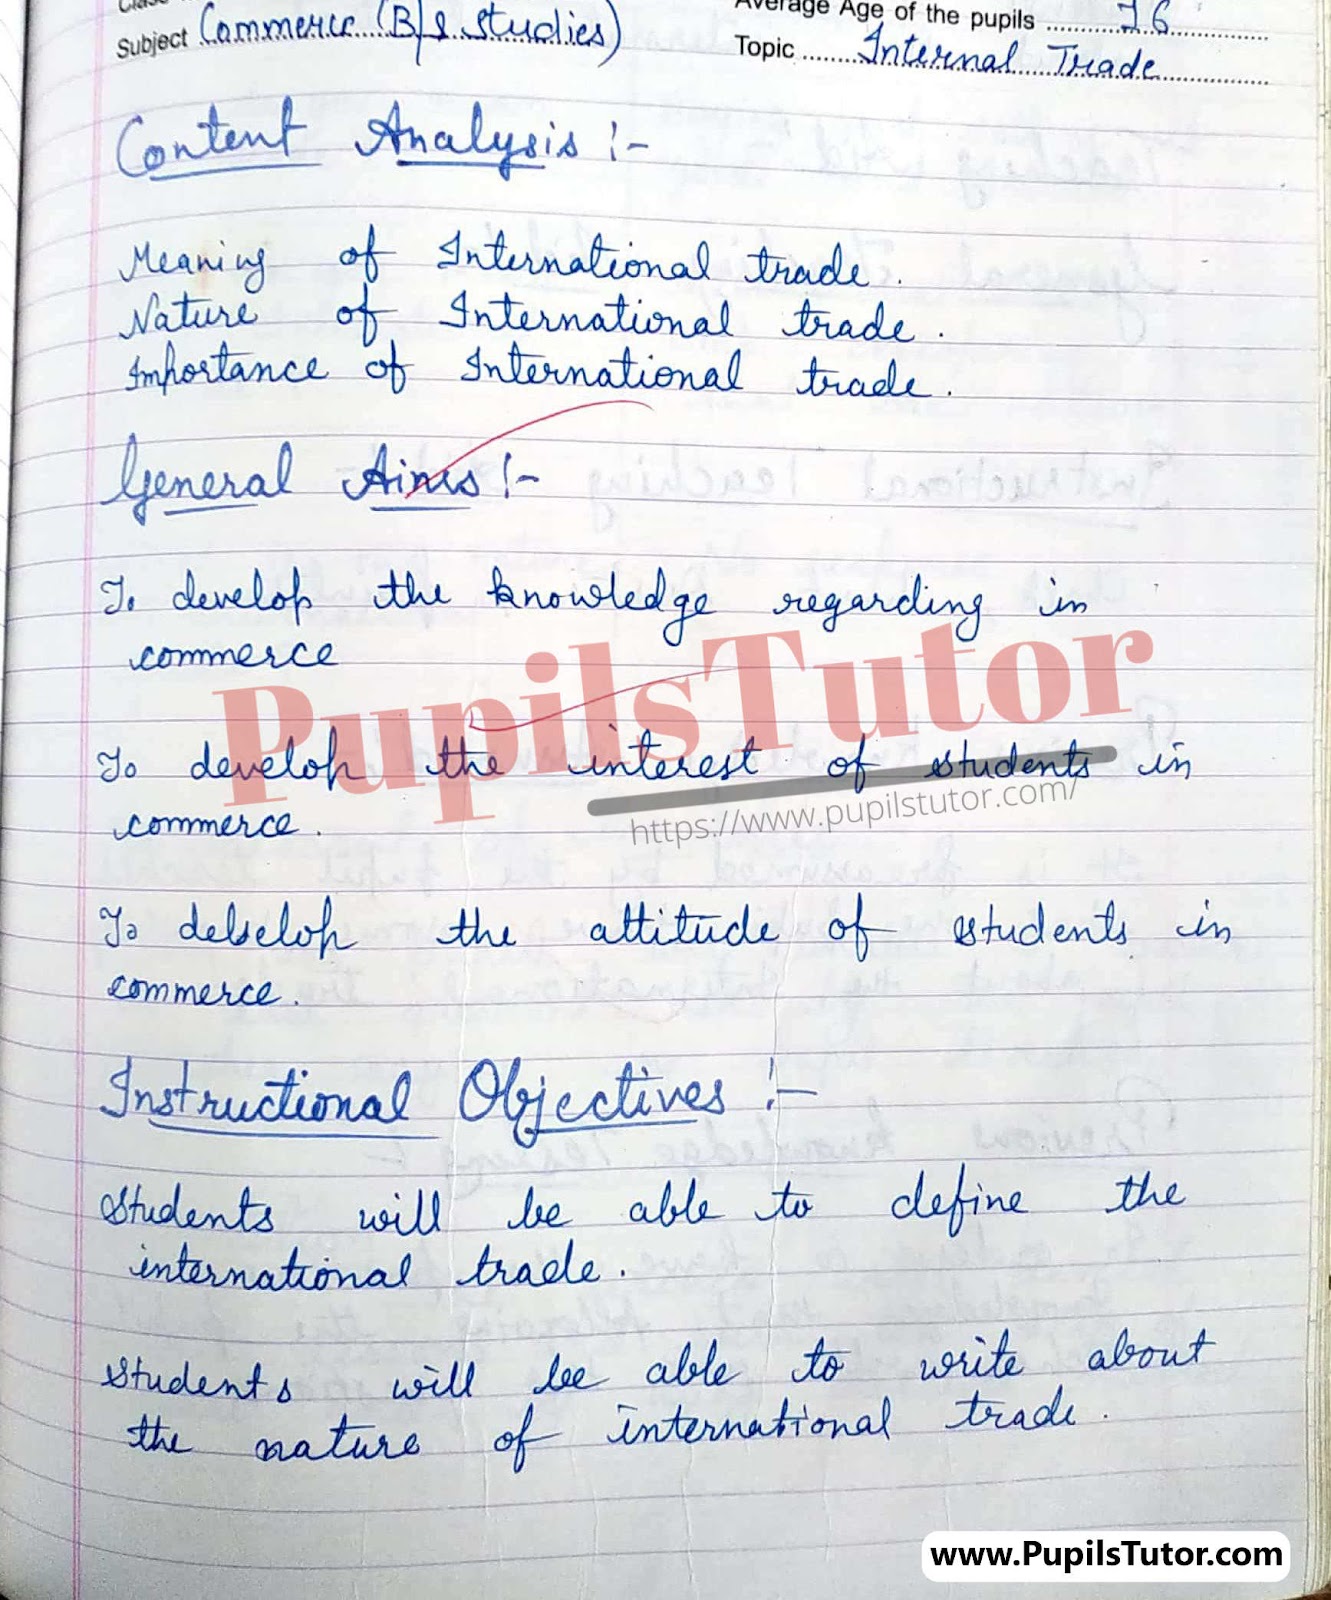 Average Age of the pupils 16
Subject Commerce (B/S studies)
Topic Internal Trade
Content Analysis :-
Meaning of International trade.
Nature of International trade.
Importance of International trade.
General Aims :-
To develop the knowledge regarding in
commerce
PupilsTutor
To develop the interest of students in
https://www.pupilstutor.com/
commerce.
To delselop the attitude of students in
commerce.
Instructional Objectives :-
Students will be able to define the
international trade.
Students will be able to write about
the nature of international trade.
www.PupilsTutor.com